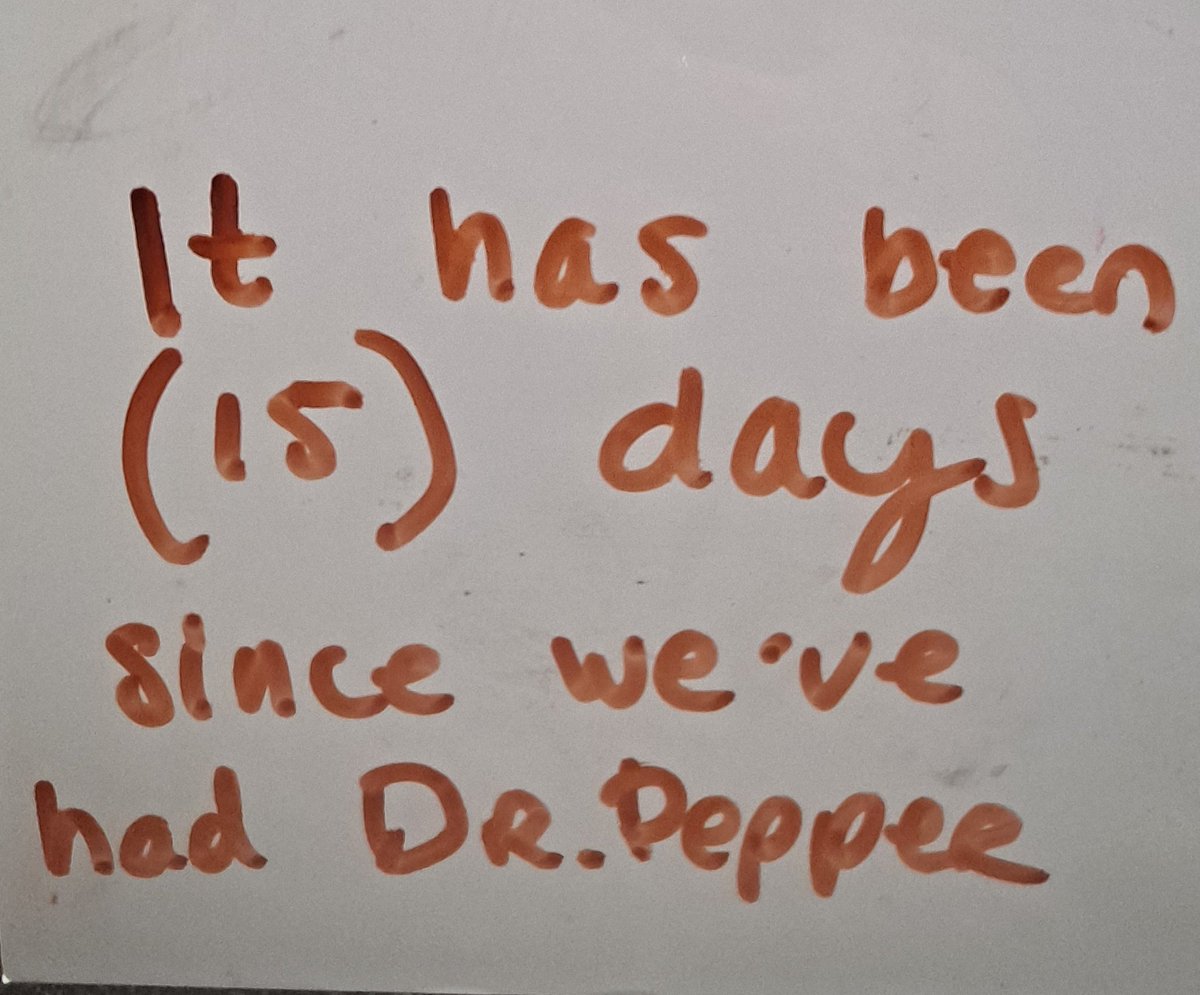 It has been
(15) days
since we've
had DR. Pepper